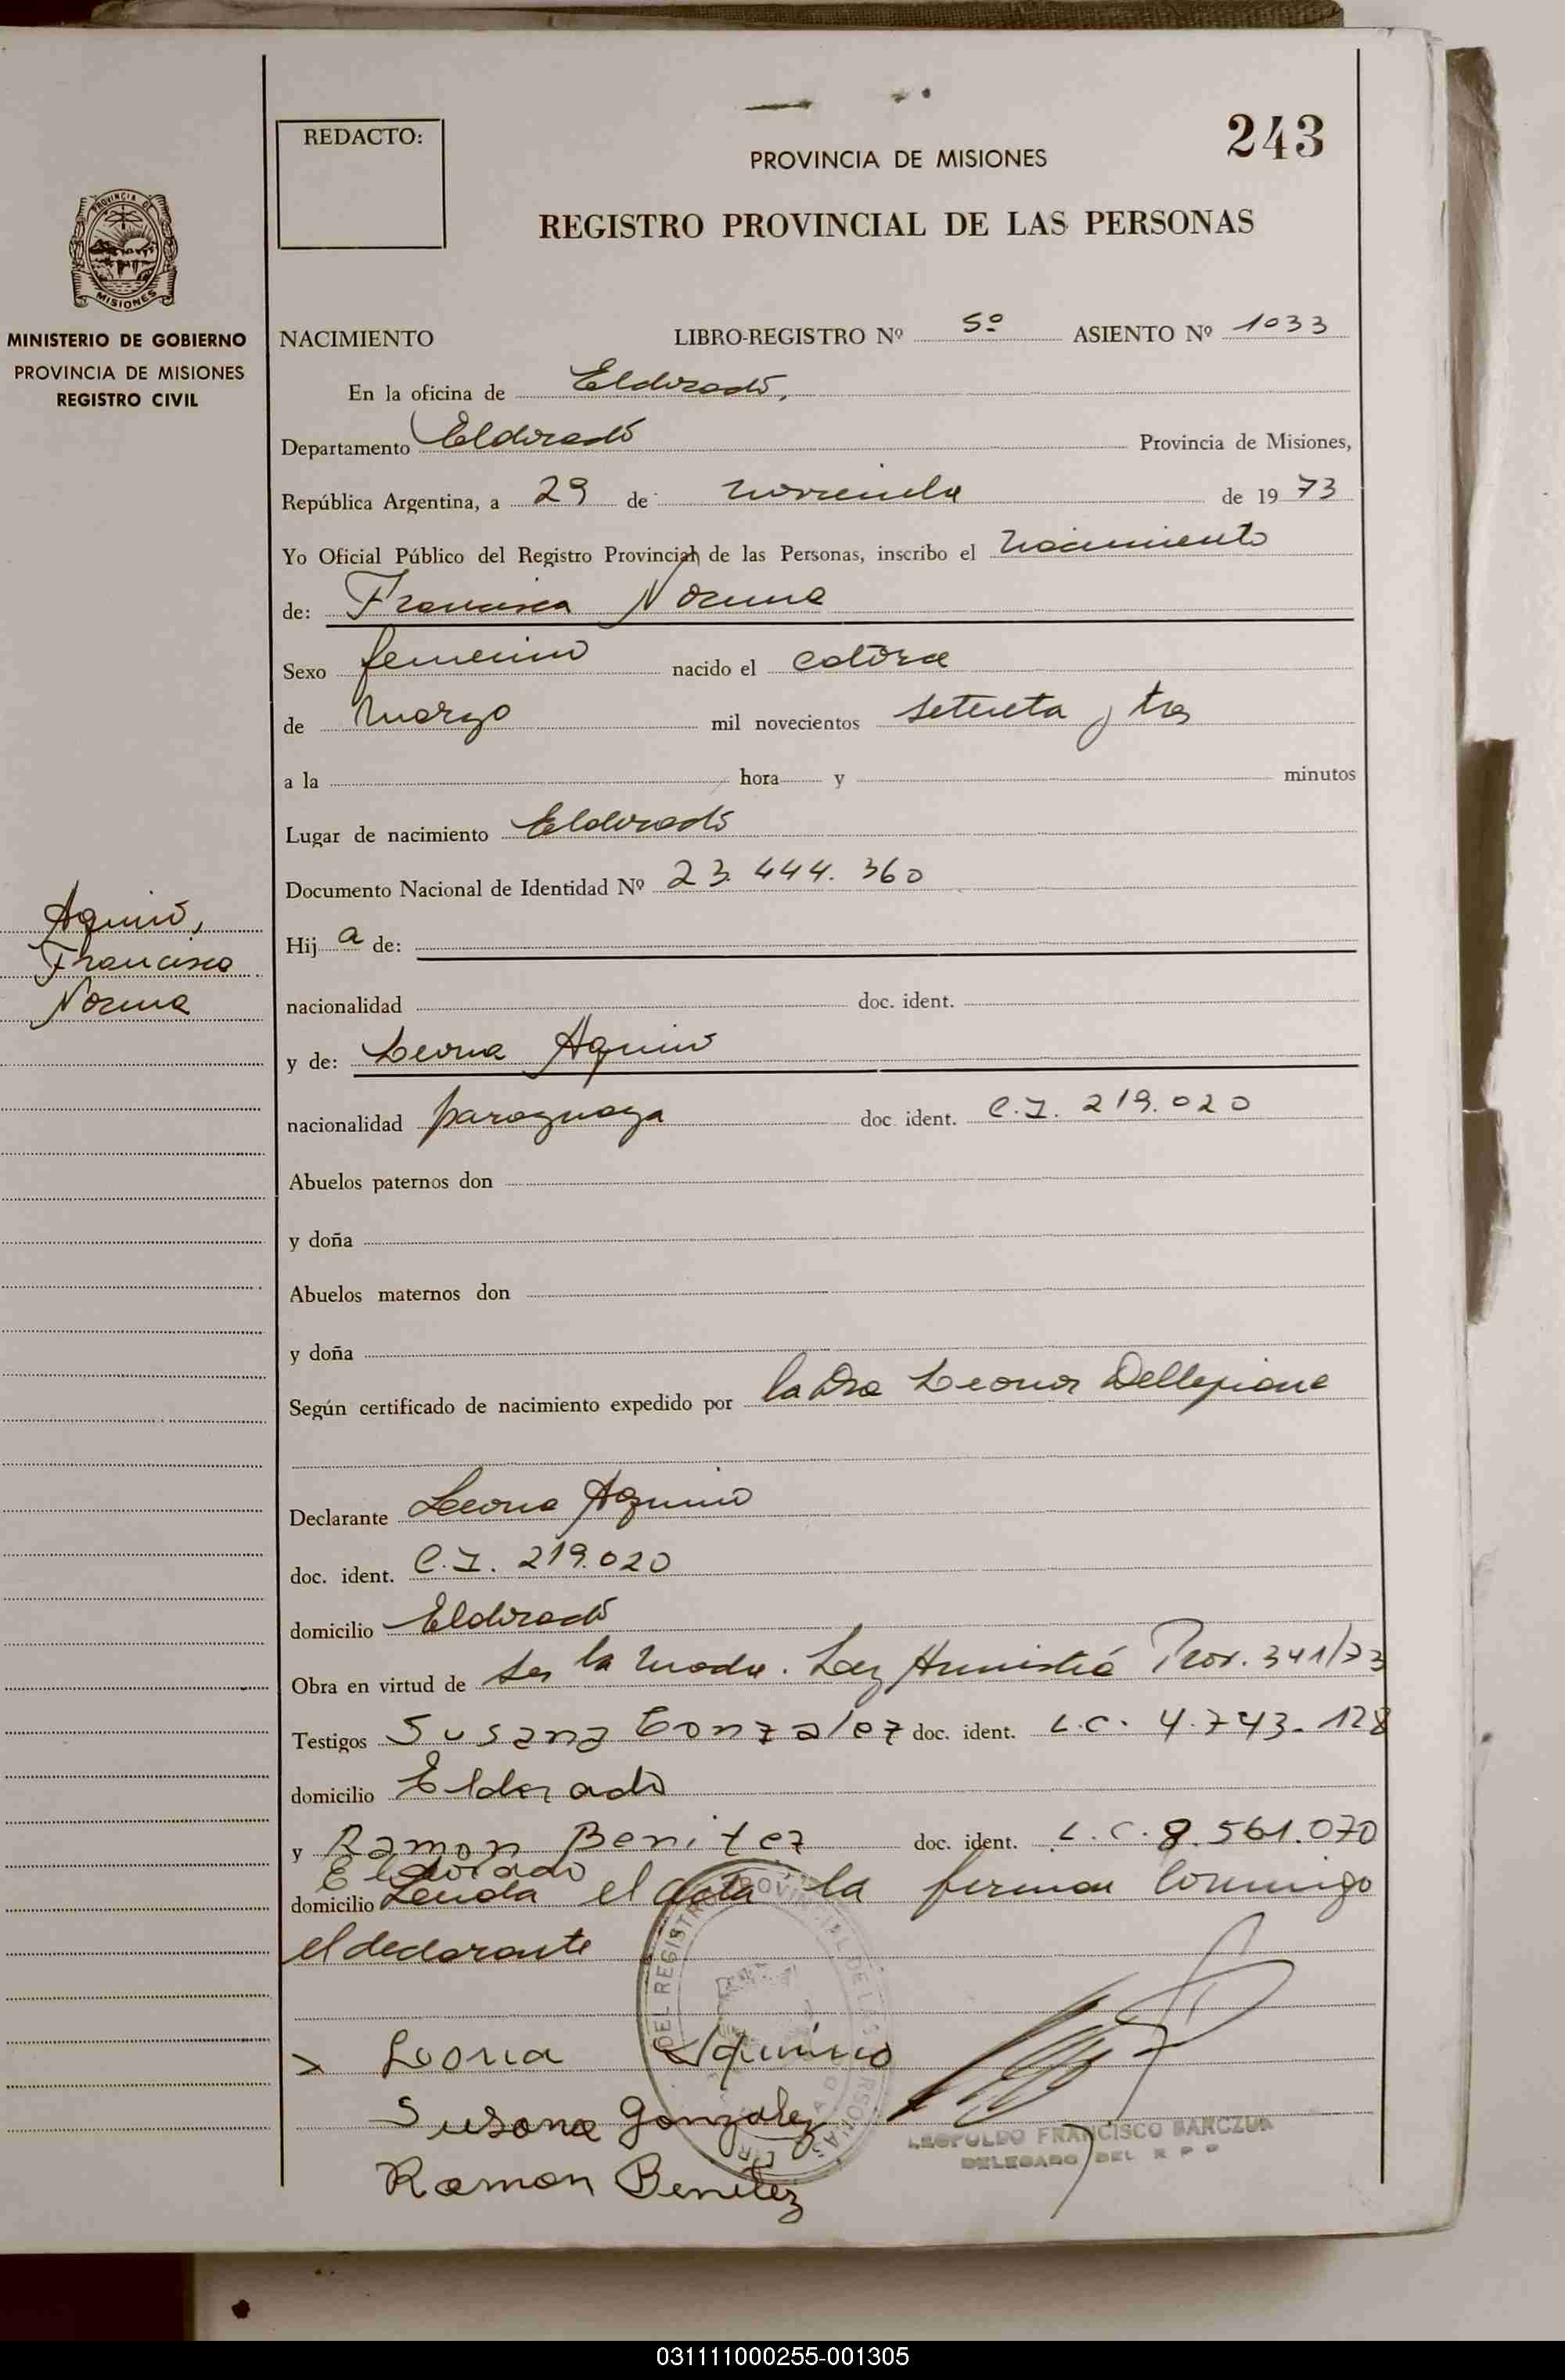 REDACTO:
PROVINCIA DE MISIONES
243
REGISTRO PROVINCIAL DE LAS PERSONAS
PROVINCIA DE
MISIONES
MINISTERIO DE GOBIERNO
PROVINCIA DE MISIONES
REGISTRO CIVIL
NACIMIENTO LIBRO-REGISTRO Nº 5º ASIENTO Nº 1033
En la oficina de Eldorado,
Departamento Eldorado Provincia de Misiones,
República Argentina, a 29 de noviembre de 19 73
Yo Oficial Público del Registro Provincial de las Personas, inscribo el nacimiento
de: Francisca Norma
Sexo femenino nacido el catorce
de marzo mil novecientos setenta y tres
a la hora y minutos
Lugar de nacimiento Eldorado
Documento Nacional de Identidad Nº 23.444.360
Aquino,
Francisca
Norma
Hij a de:
nacionalidad doc. ident.
y de: Leona Aquino
nacionalidad paraguaya doc ident. C.I. 219.020
Abuelos paternos don
y doña
Abuelos maternos don
y doña
Según certificado de nacimiento expedido por la Dra Leonor Dellepiane
Declarante Leona Aquino
doc. ident. C.I. 219.020
domicilio Eldorado
Obra en virtud de ser la madre. Ley Amnistía Prov. 341/73
Testigos Susana Gonzalez doc. ident. L.C. 4.743.128
domicilio Eldorado
y Ramon Benitez doc. ident. L.C. 8.561.070
Eldorado
domicilio Leida el acta la firman conmigo
el declarante
DEL REGISTRO PROVINCIAL DE LAS PERSONAS
Leona Aquino
Susana Gonzalez
Ramon Benitez
LEOPOLDO FRANCISCO BANCZUR
DELEGADO DEL R P P
031111000255-001305